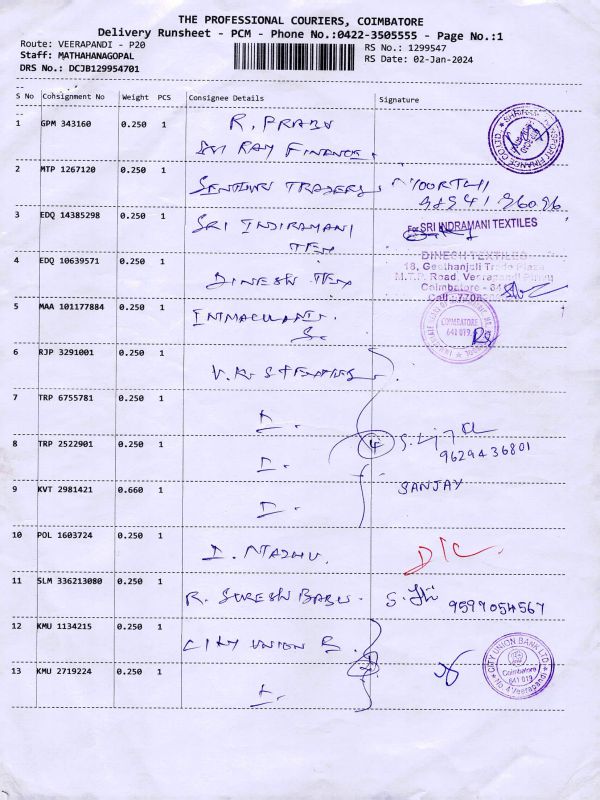 THE PROFESSIONAL COURIERS, COIMBATORE
Delivery Runsheet - PCM - Phone No.:0422-3505555 - Page No.:1
Route: VEERAPANDI - P20
RS No.: 1299547
Staff: MATHAHANAGOPAL
RS Date: 02-Jan-2024
DRS No.: DCJB129954701
S No Consignment No Weight PCS Consignee Details Signature
1 GPM 343160 0.250 1 R. PRABU
SRI RAY FINANCE.
2 MTP 1267120 0.250 1 SENTHUR TRADERS MOORTHI
98941 96096
3 EDQ 14385298 0.250 1 SRI INDIRAMANI
TEX
For SRI INDRAMANI TEXTILES
4 EDQ 10639571 0.250 1 DINESH TEX
DINESH TEXTILES
18, Geethanjali Trade Plaza
M.T.P. Road, Veerapandi
Coimbatore - 64
5 MAA 101177884 0.250 1
COIMBATORE
641 019
6 RJP 3291001 0.250 1
7 TRP 6755781 0.250 1
8 TRP 2522901 0.250 1 4
9629436801
9 KVT 2981421 0.660 1 SANJAY
10 POL 1603724 0.250 1 D/C
11 SLM 336213080 0.250 1 R. SURESH BABU. 9597054567
12 KMU 1134215 0.250 1 CITY UNION B.
13 KMU 2719224 0.250 1
CITY UNION BANK LTD
Coimbatore
641 019
No. 4 Veerapandi